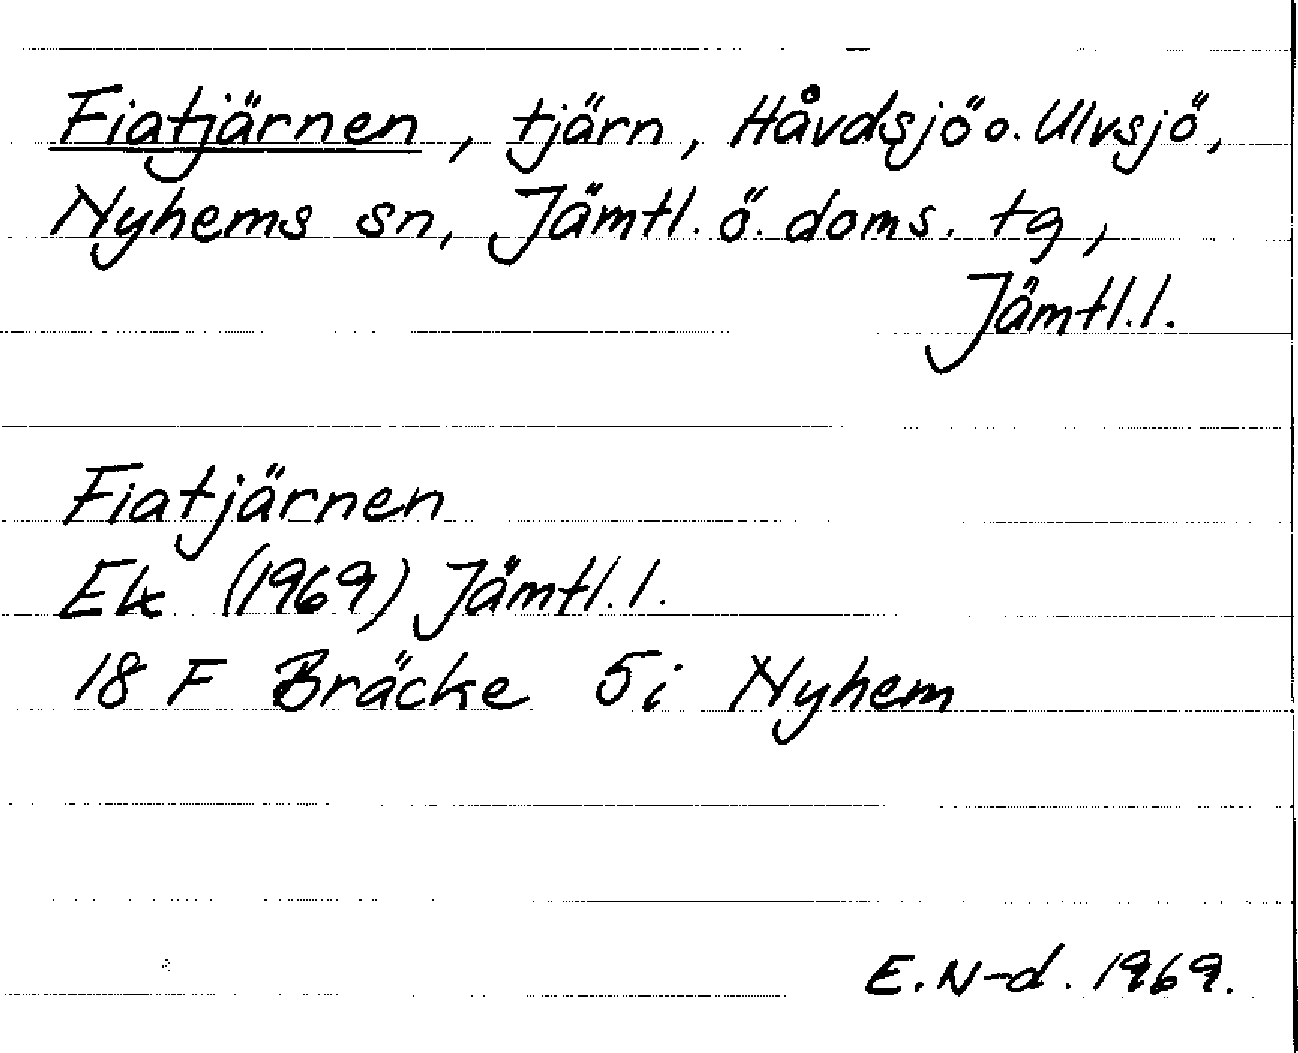 Fiatjärnen, tjärn, Håvdsjö o. Ulvsjö,
Nyhems sn, Jämtl. ö. doms. tg,
Jämtl. l.
Fiatjärnen
Ek (1969) Jämtl. l.
18 F Bräcke 5i Nyhem
E. N-d. 1969.